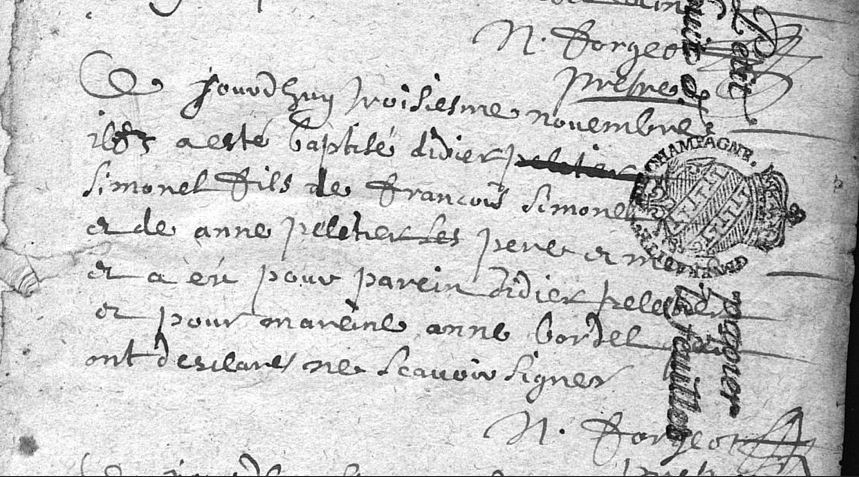 N. Forgeot
prestre
Ce jourdhuy troisiesme novembre
a esté baptisé didier peletier
simonel fils de francois simonel
et de anne peletier les pere et mere
et a eu pour parein didier peletier
et pour mareine anne bordel
ont desclarés ne scavoir signer
N. Forgeot
CHAMPAGNE
Petit
papier
feuilles